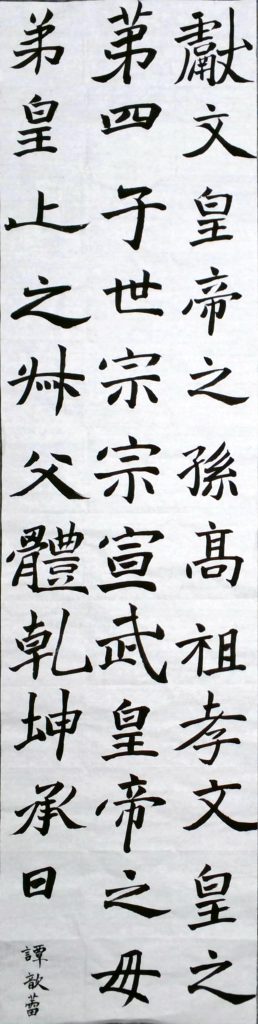 獻文皇帝之孫高祖孝文皇之
第四子世宗宗宣武皇帝之毋
弟皇上之叔父體乾坤承日
譚歆蕾